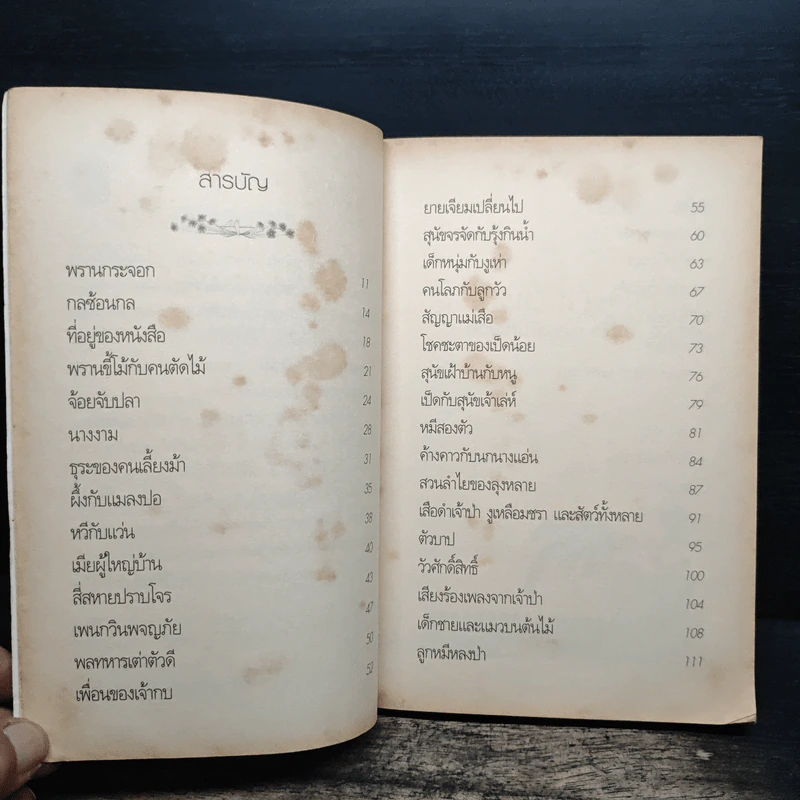 สารบัญ
พรานกระจอก 11
กลซ้อนกล 14
ที่อยู่ของหนังสือ 18
พรานขี้โม้กับคนตัดไม้ 21
จ้อยจับปลา 24
นางงาม 28
ธุระของคนเลี้ยงม้า 31
ผึ้งกับแมลงปอ 35
หวีกับแว่น 38
เมียผู้ใหญ่บ้าน 40
สี่สหายปราบโจร 43
เพนกวินพจญภัย 47
พลทหารเต่าตัวดี 50
เพื่อนของเจ้ากบ 52
ยายเจียมเปลี่ยนไป 55
สุนัขจรจัดกับรุ้งกินน้ำ 60
เด็กหนุ่มกับงูเห่า 63
คนโลภกับลูกวัว 67
สัญญาแม่เสือ 70
โชคชะตาของเป็ดน้อย 73
สุนัขเฝ้าบ้านกับหนู 76
เป็ดกับสุนัขเจ้าเล่ห์ 79
หมีสองตัว 81
ค้างคาวกับนกนางแอ่น 84
สวนลำไยของลุงหลาย 87
เสือดำเจ้าป่า งูเหลือมชรา และสัตว์ทั้งหลาย 91
ตัวบาป 95
วัวศักดิ์สิทธิ์ 100
เสียงร้องเพลงจากเจ้าป่า 104
เด็กชายและแมวบนต้นไม้ 108
ลูกหมีหลงป่า 111